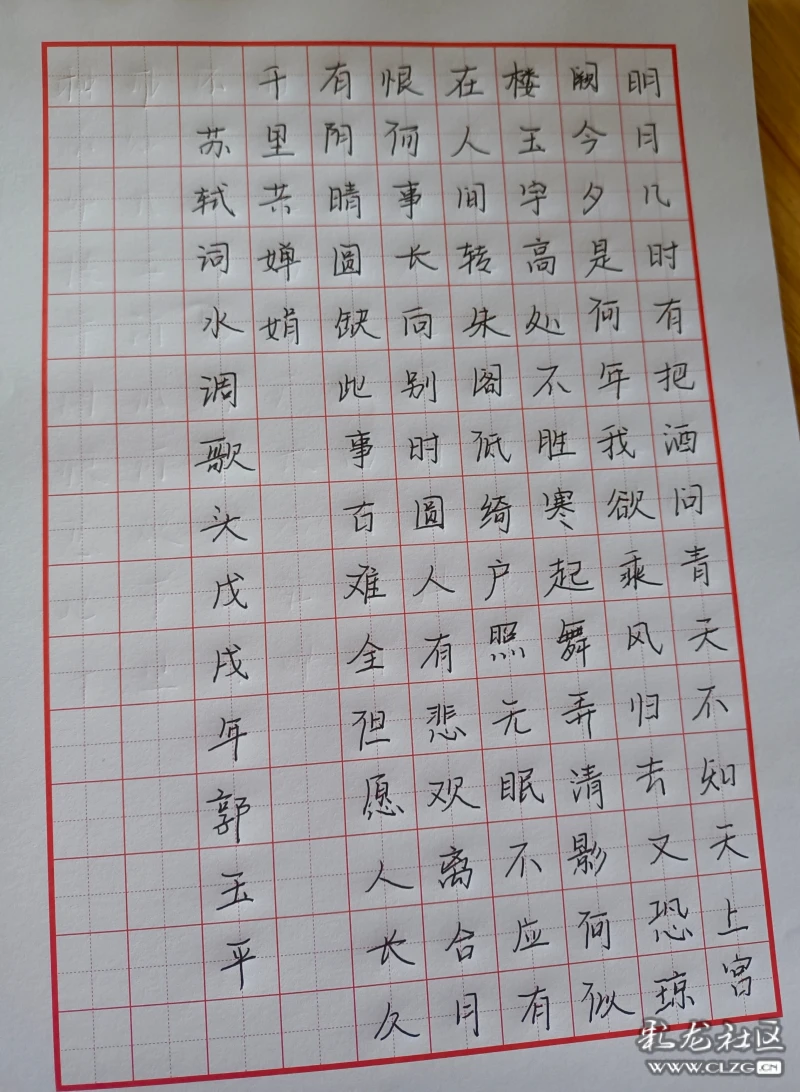 明月几时有把酒问青天不知天上宫
阙今夕是何年我欲乘风归去又恐琼
楼玉宇高处不胜寒起舞弄清影何似
在人间转朱阁低绮户照无眠不应有
恨何事长向别时圆人有悲欢离合月
有阴晴圆缺此事古难全但愿人长久
千里共婵娟
苏轼词水调歌头戊戌年郭玉平
彩龙社区
WWW.CLZG.CN